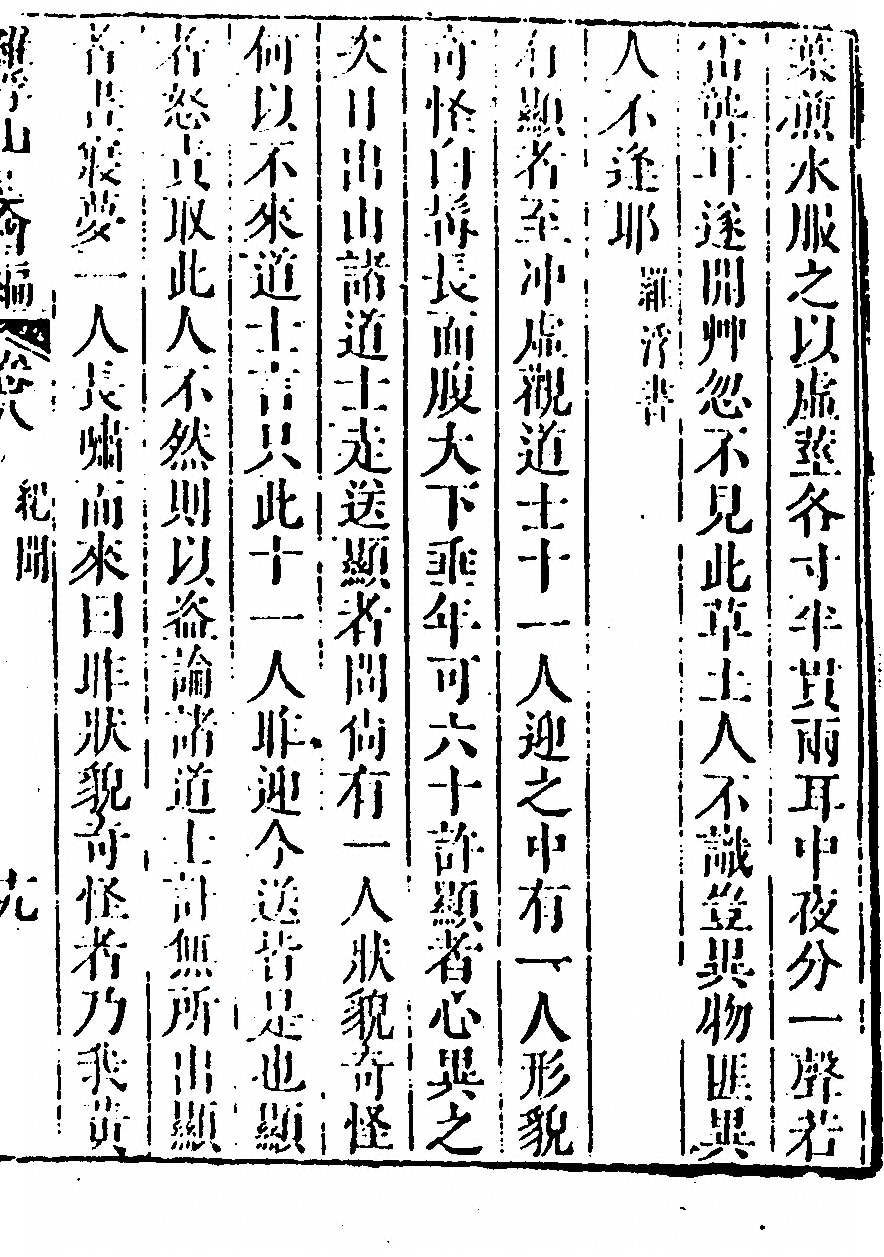 葉煎水服之以虛莖各寸半貫兩耳中夜分一聲若
雷聾耳遂開艸忽不見此草土人不識豈異物匪異
人不逢耶羅浮書
有顯者至沖虛觀道士十一人迎之中有一人形貌
奇怪白鬍長面腹大下垂年可六十許顯者心異之
次日出山諸道士走送顯者問尚有一人狀貌奇怪
何以不來道士言只此十一人昨迎今送皆是也顯
者怒責取此人不然則以盜論諸道士計無所出顯
者晝寢夢一人長嘯而來曰昨狀貌奇怪者乃我黃
羅浮山志會編 卷八 紀聞 九